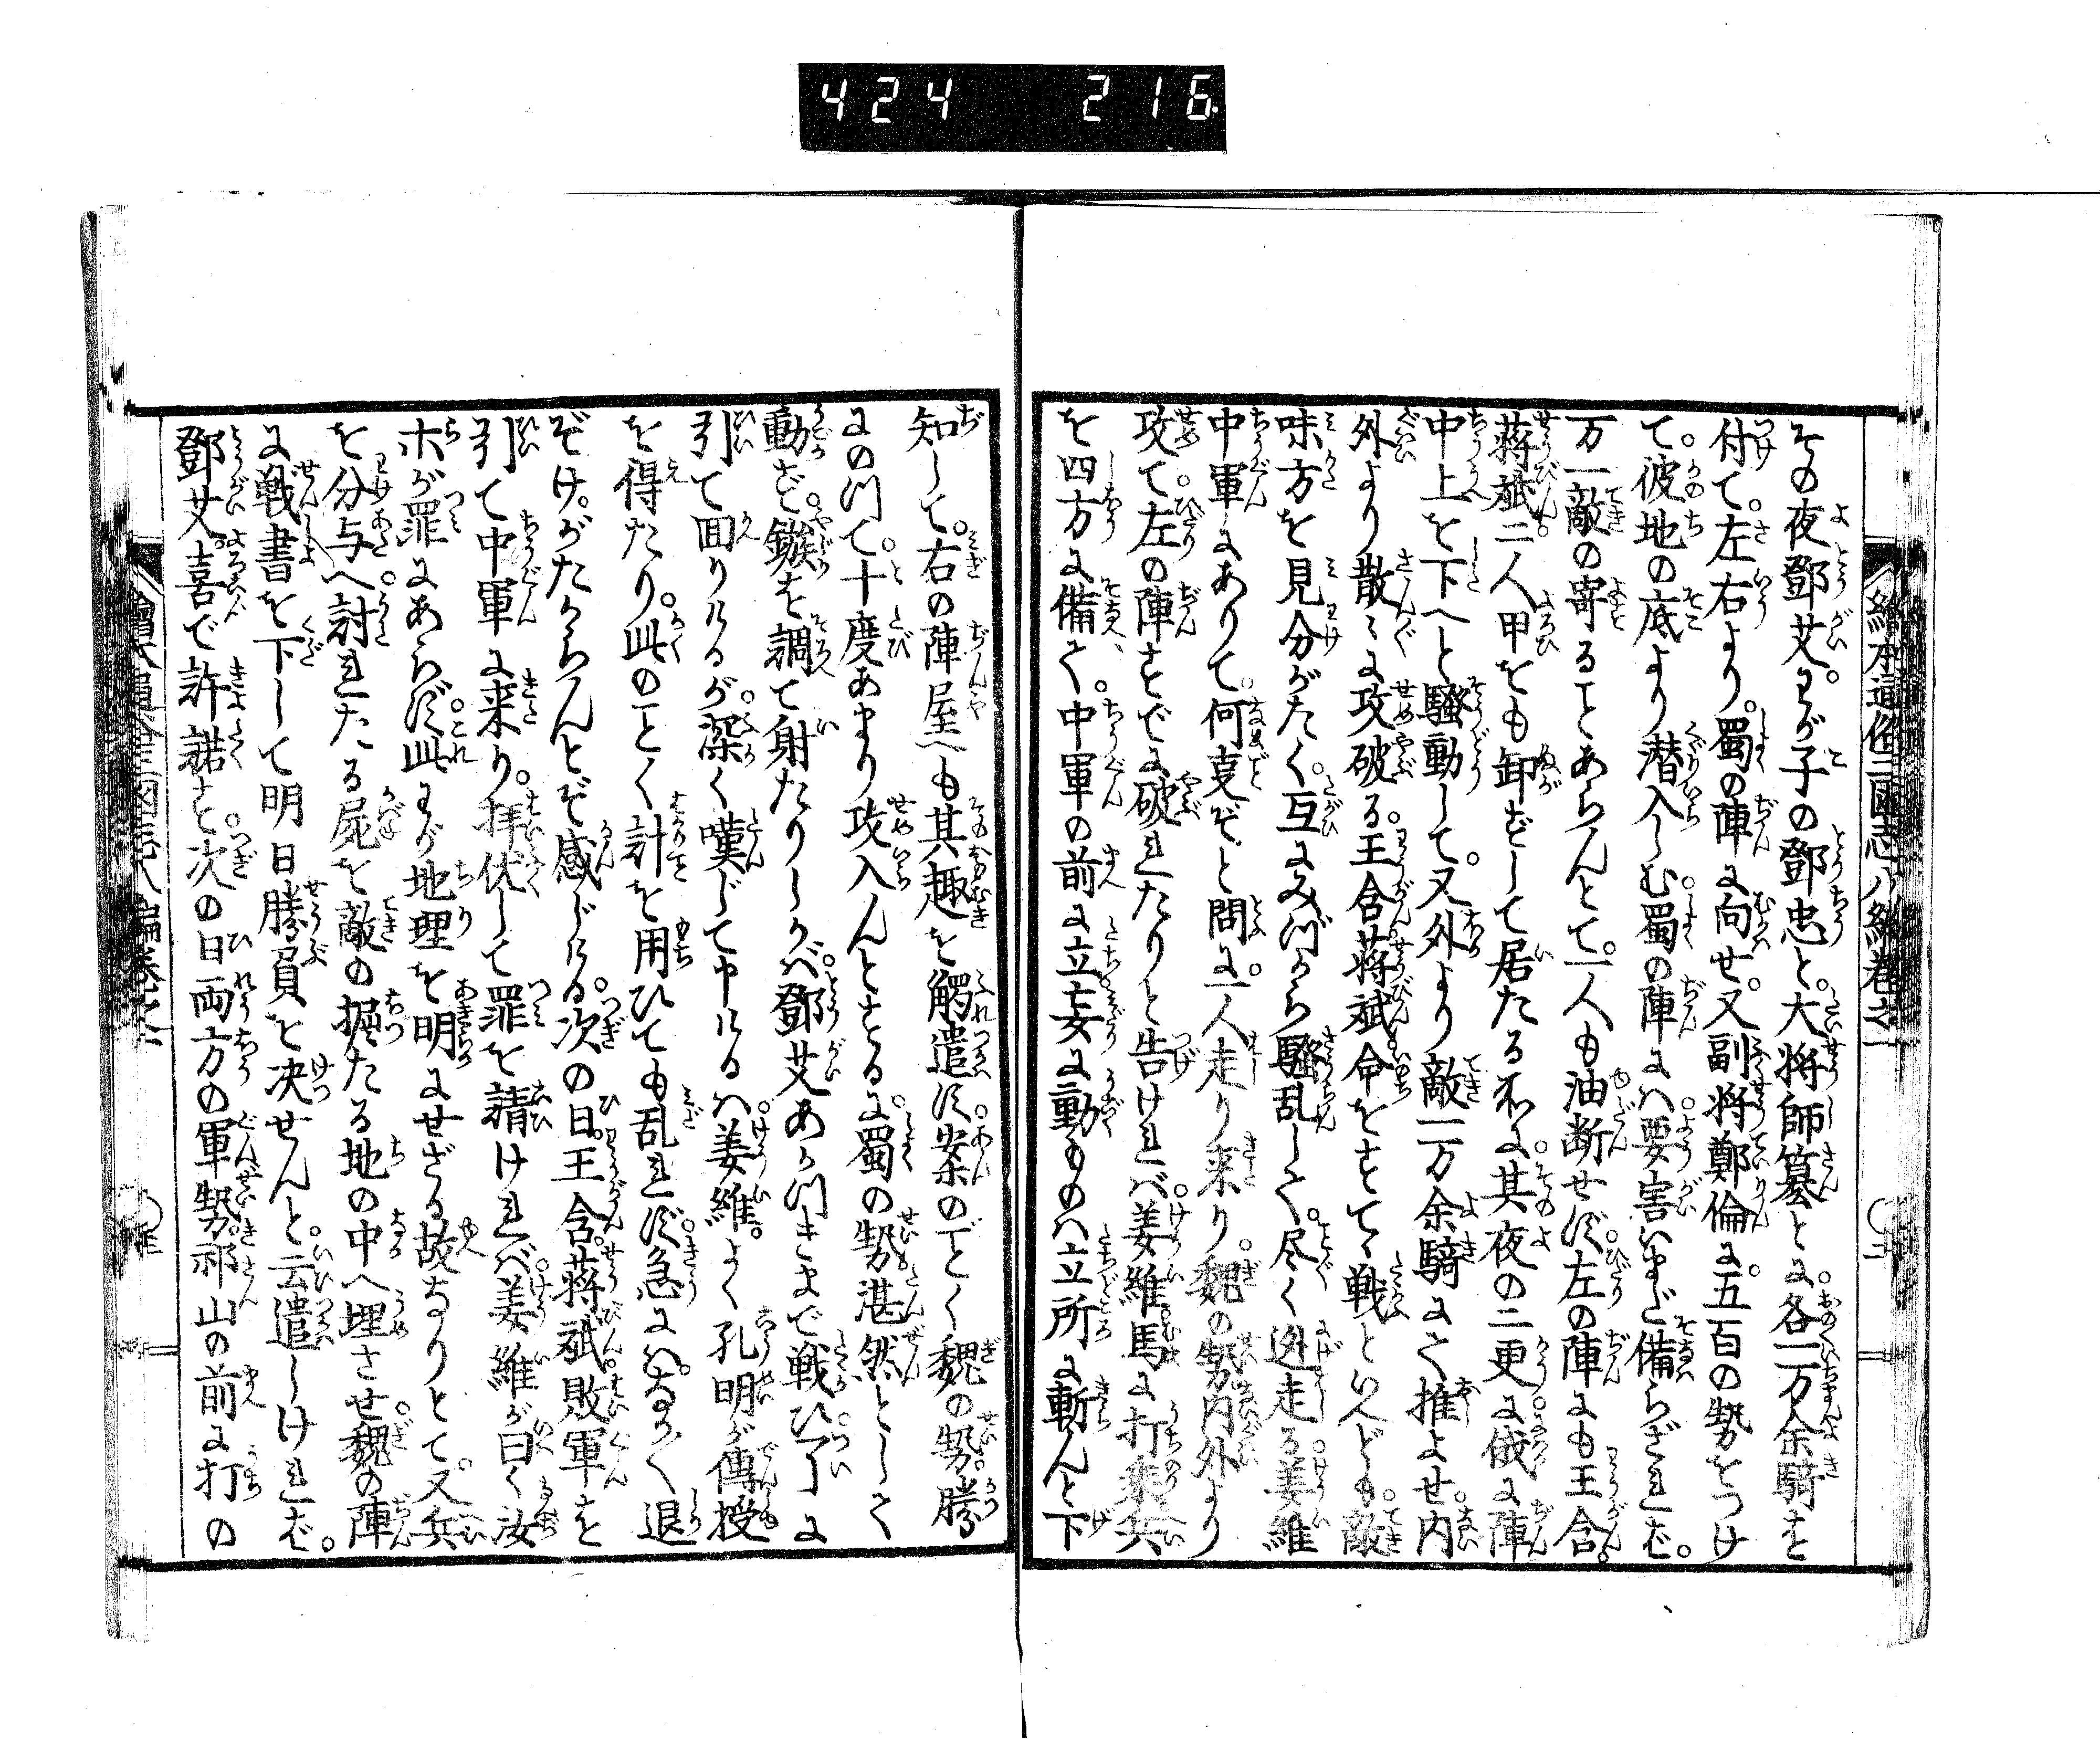 424 216
繪本通俗三國志八編卷之一
その夜鄧艾。わが子の鄧忠と。大将師纂とに。各一万余騎を
付て。左右より。蜀の陣に向せ。又副将鄭倫に。五百の勢をつけ
て。彼地の底より潜入しむ。蜀の陣にハ要害いまだ備らざれば。
万一敵の寄ることあらんとて。一人も油断せず。左の陣にも王含。
蒋斌二人甲をも卸ずして居たる所に。其夜の二更に俄に陣
中上を下へと騒動して。又外より敵一万余騎にて推よせ。内
外より散々に攻破る。王含蒋斌。命をすてゝ戦といへども。敵
味方を見分がたく。互にみづから騒乱して。尽く迯走る。姜維
中軍にありて。何叓ぞと問に。一人走り来り。魏の勢内外より
攻て。左の陣すでに破れたりと告けれバ。姜維。馬に打乗兵
を四方に備て。中軍の前に立。妄に動ものハ立所に斬んと下
知して。右の陣屋へも其趣を觸遣ス。案のごとく魏の勢。勝
にのつて。十度あまり攻入んとするに。蜀の勢湛然として
動ず。鏃を調て射たりしかバ。鄧艾あかつきまで戦ひ。了に
引て回りけるが。深く嘆じて申けるハ。姜維。よく孔明が傳授
を得たり。此のごとく計を用ひても乱れず。急にハ。なかく退
ぞけ。がたからんとぞ感じける。次の日。王含。蒋斌。敗軍を
引て中軍に来り。拝伏して罪を請けれバ。姜維が曰く汝
ホが罪にあらず。此わが地理を明にせざる故なりとて。又兵
を分与へ。討れたる屍を敵の掘たる地の中へ埋させ。魏の陣
に戦書を下して明日勝負を决せんと。云遣しけれバ。
鄧艾。喜で許諾す。次の日両方の軍勢。祁山の前に打の